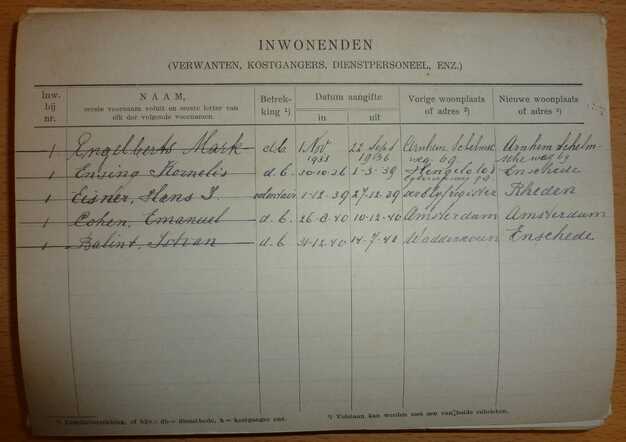 INWONENDEN
(VERWANTEN, KOSTGANGERS, DIENSTPERSONEEL, ENZ.)
Inw. bij nr.
NAAM,
eerste voornaam voluit en eerste letter van elk der volgende voornamen.
Betrekking ¹)
Datum aangifte
in uit
Vorige woonplaats of adres ²)
Nieuwe woonplaats of adres ²)
1 Engelberts Mark d.b. 1 Nov 1933 22 Sept 1936 Arnhem Schelmseweg 69 Arnhem Schelmscheweg 69
1 Ensing Kornelis d.b. 10-10-36 1-3-39 Hengelo (o) Enschede
1 Eisner, Hans J. volontair 1-12-39 27-12-39 Rheden
1 Cohen, Emanuel d.b. 26-8-40 10-12-40 Amsterdam Amsterdam
1 Balint, Istvan d.b. 31-12-40 14-7-42 Enschede
¹) Familiebetrekking, of bijv.: db = dienstbode, k = kostganger enz.
²) Volstaan kan worden met een van beide rubrieken.